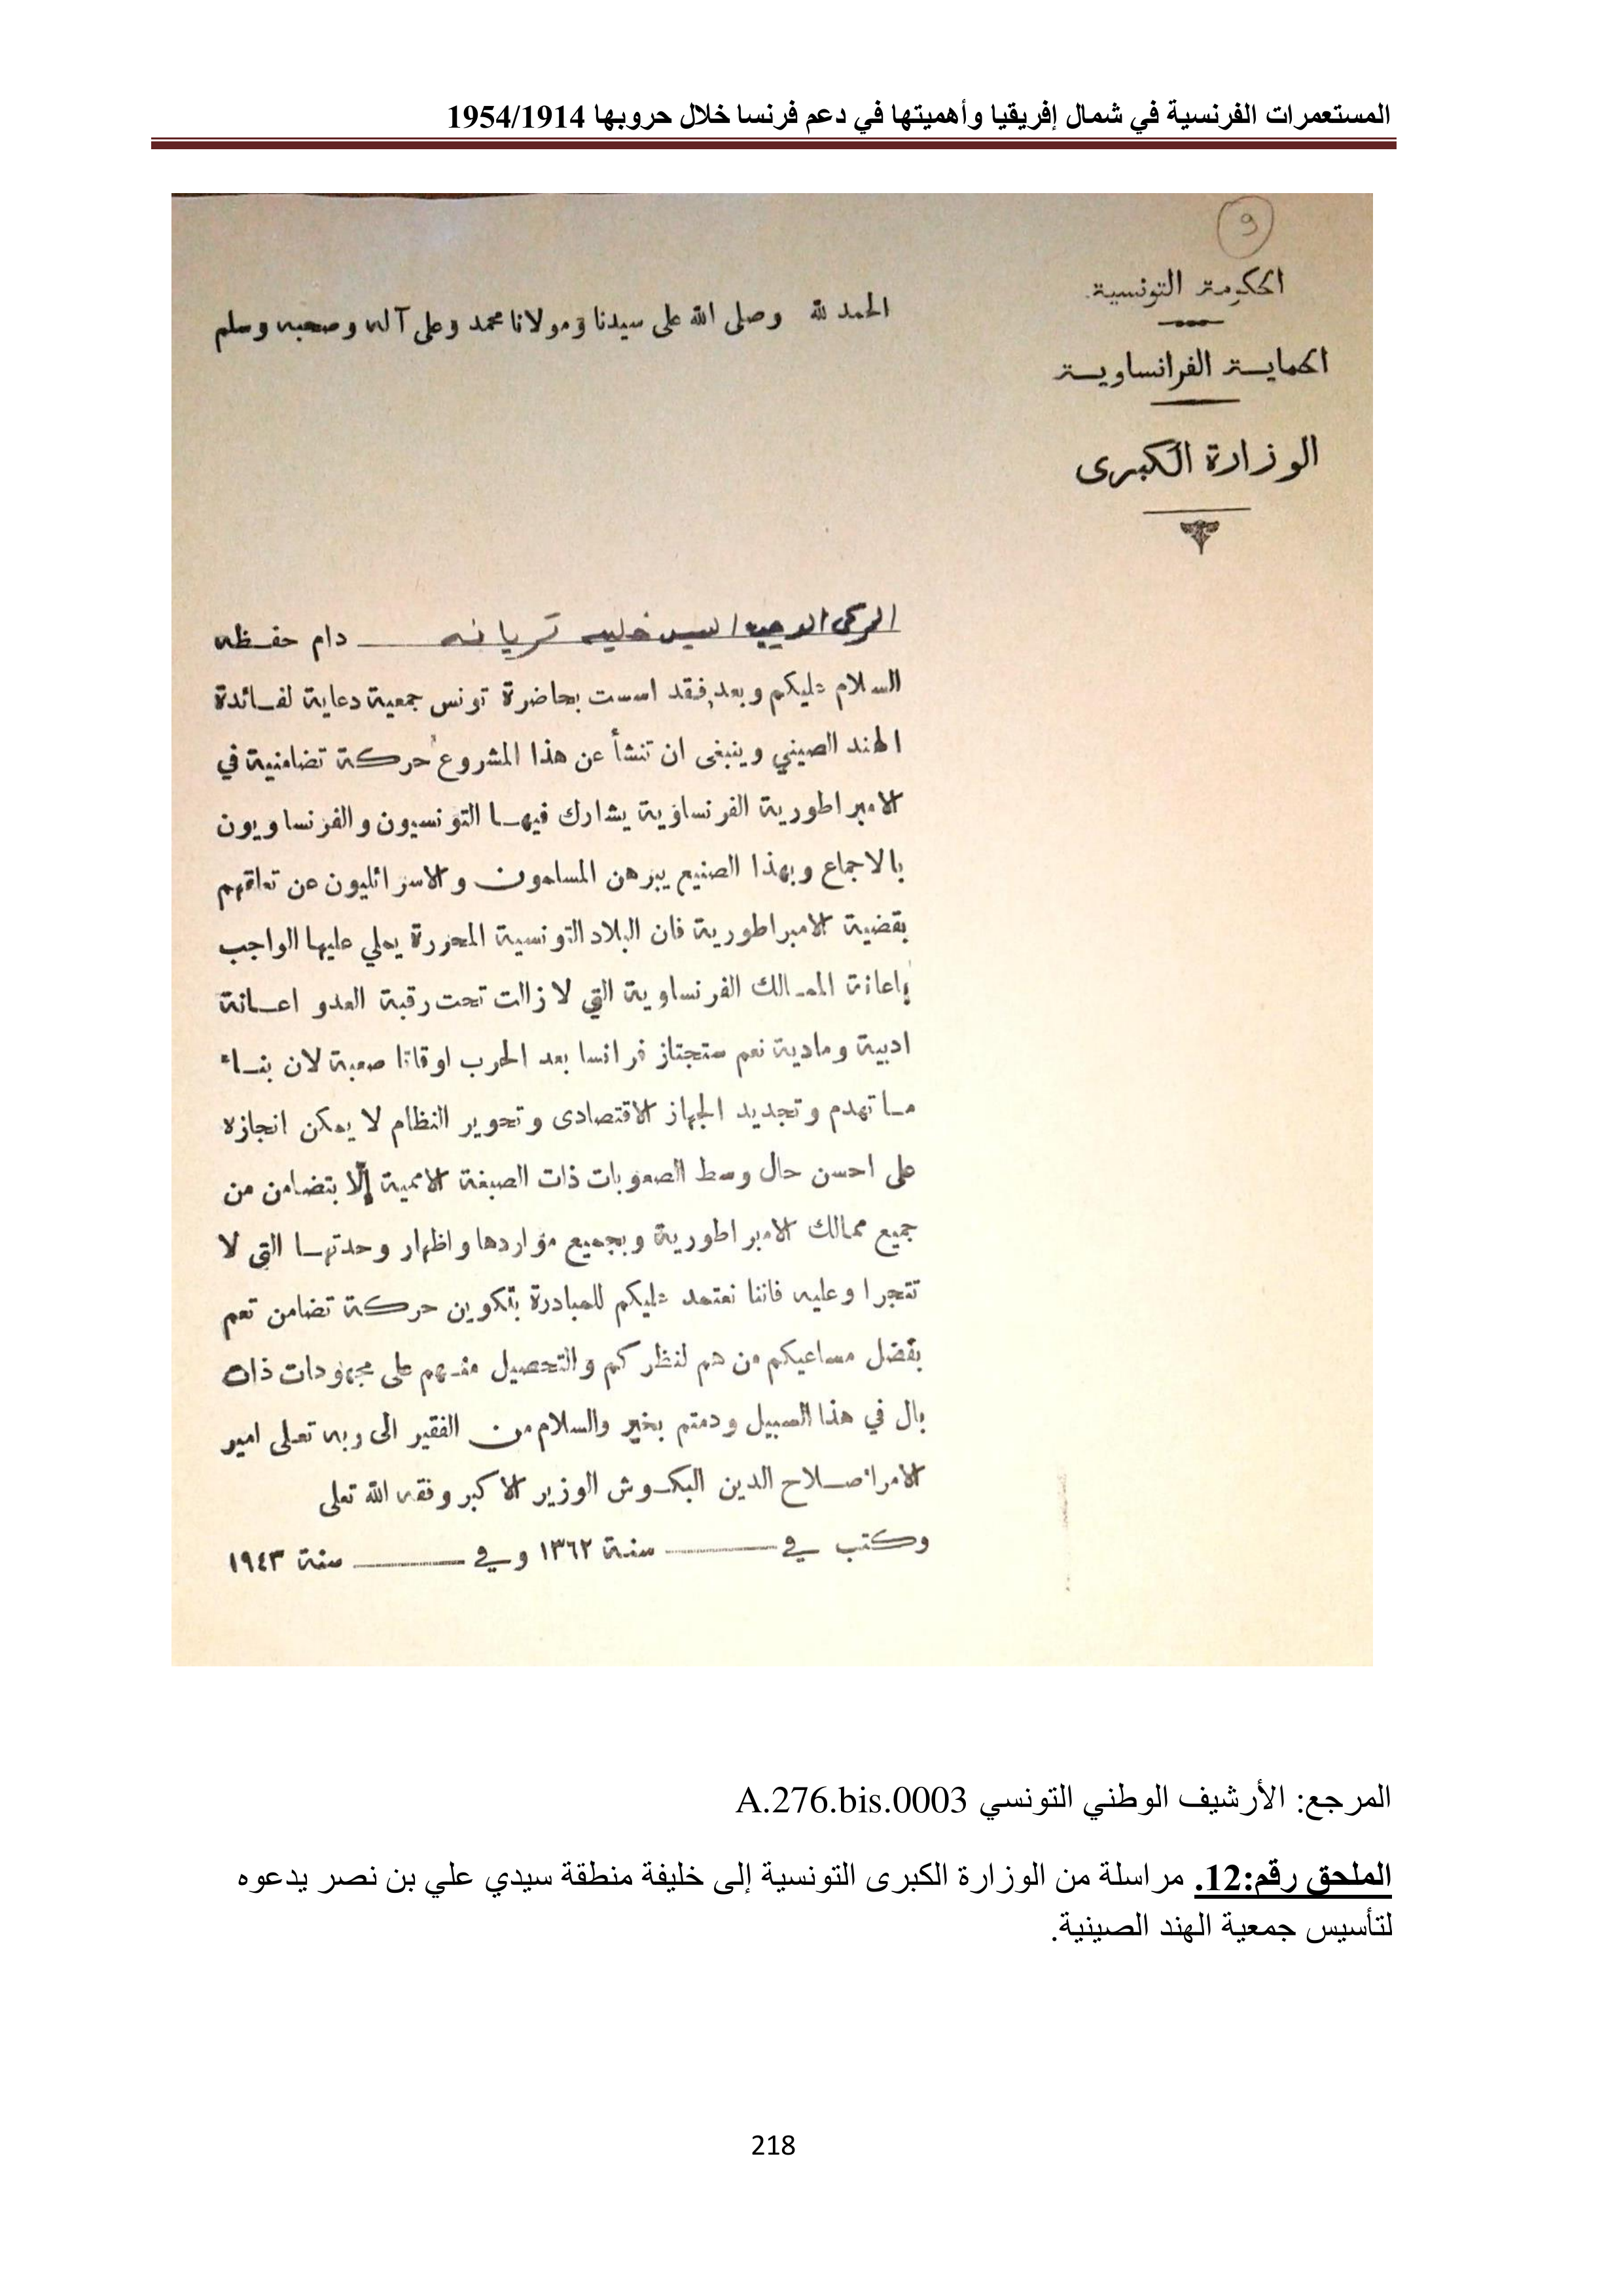 المستعمرات الفرنسية في شمال إفريقيا وأهميتها في دعم فرنسا خلال حروبها 1954/1914
9
الحكومة التونسية
الحماية الفرانساوية
الوزارة الكبرى
الحمد لله وصلى الله على سيدنا ومولانا محمد وعلى آله وصحبه وسلم
الزكي الوجيه السيد خليفة قريانة دام حفظه
السلام عليكم وبعد فقد اسست بحاضرة تونس جمعية دعاية لفائدة
الهند الصيني وينبغى ان تنشأ عن هذا المشروع حركة تضامنية في
الامبراطورية الفرنساوية يشارك فيها التونسيون والفرنساويون
بالاجماع وبهذا الصنيع يبرهن المسلمون والاسرائليون عن تعلقهم
بقضية الامبراطورية فان البلاد التونسية المحررة يملي عليها الواجب
باعانة الممالك الفرنساوية التي لا زالت تحت رقبة العدو اعانة
ادبية ومادية نعم ستجتاز فرانسا بعد الحرب اوقاتا صعبة لان بناء
ما تهدم وتجديد الجهاز الاقتصادى وتحوير النظام لا يمكن انجازه
على احسن حال وسط الصعوبات ذات الصبغة الاممية إلّا بتضامن من
جميع ممالك الامبراطورية وبجميع مواردها واظهار وحدتها التي لا
تتجرا وعليه فاننا نعتمد عليكم للمبادرة بتكوين حركة تضامن تعم
بفضل مساعيكم من هم لنظركم والتحصيل منهم على مجهودات ذات
بال في هذا السبيل ودمتم بخير والسلام من الفقير الى ربه تعلى امير
الامراء صلاح الدين البكوش الوزير الاكبر وفقه الله تعلى
وكتب في سنة ١٣٦٢ وفي سنة ١٩٤٣
المرجع: الأرشيف الوطني التونسي A.276.bis.0003
الملحق رقم:12. مراسلة من الوزارة الكبرى التونسية إلى خليفة منطقة سيدي علي بن نصر يدعوه
لتأسيس جمعية الهند الصينية.
218